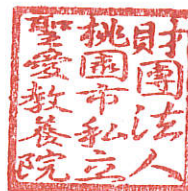 財團法人
桃園市私立
聖愛教養院